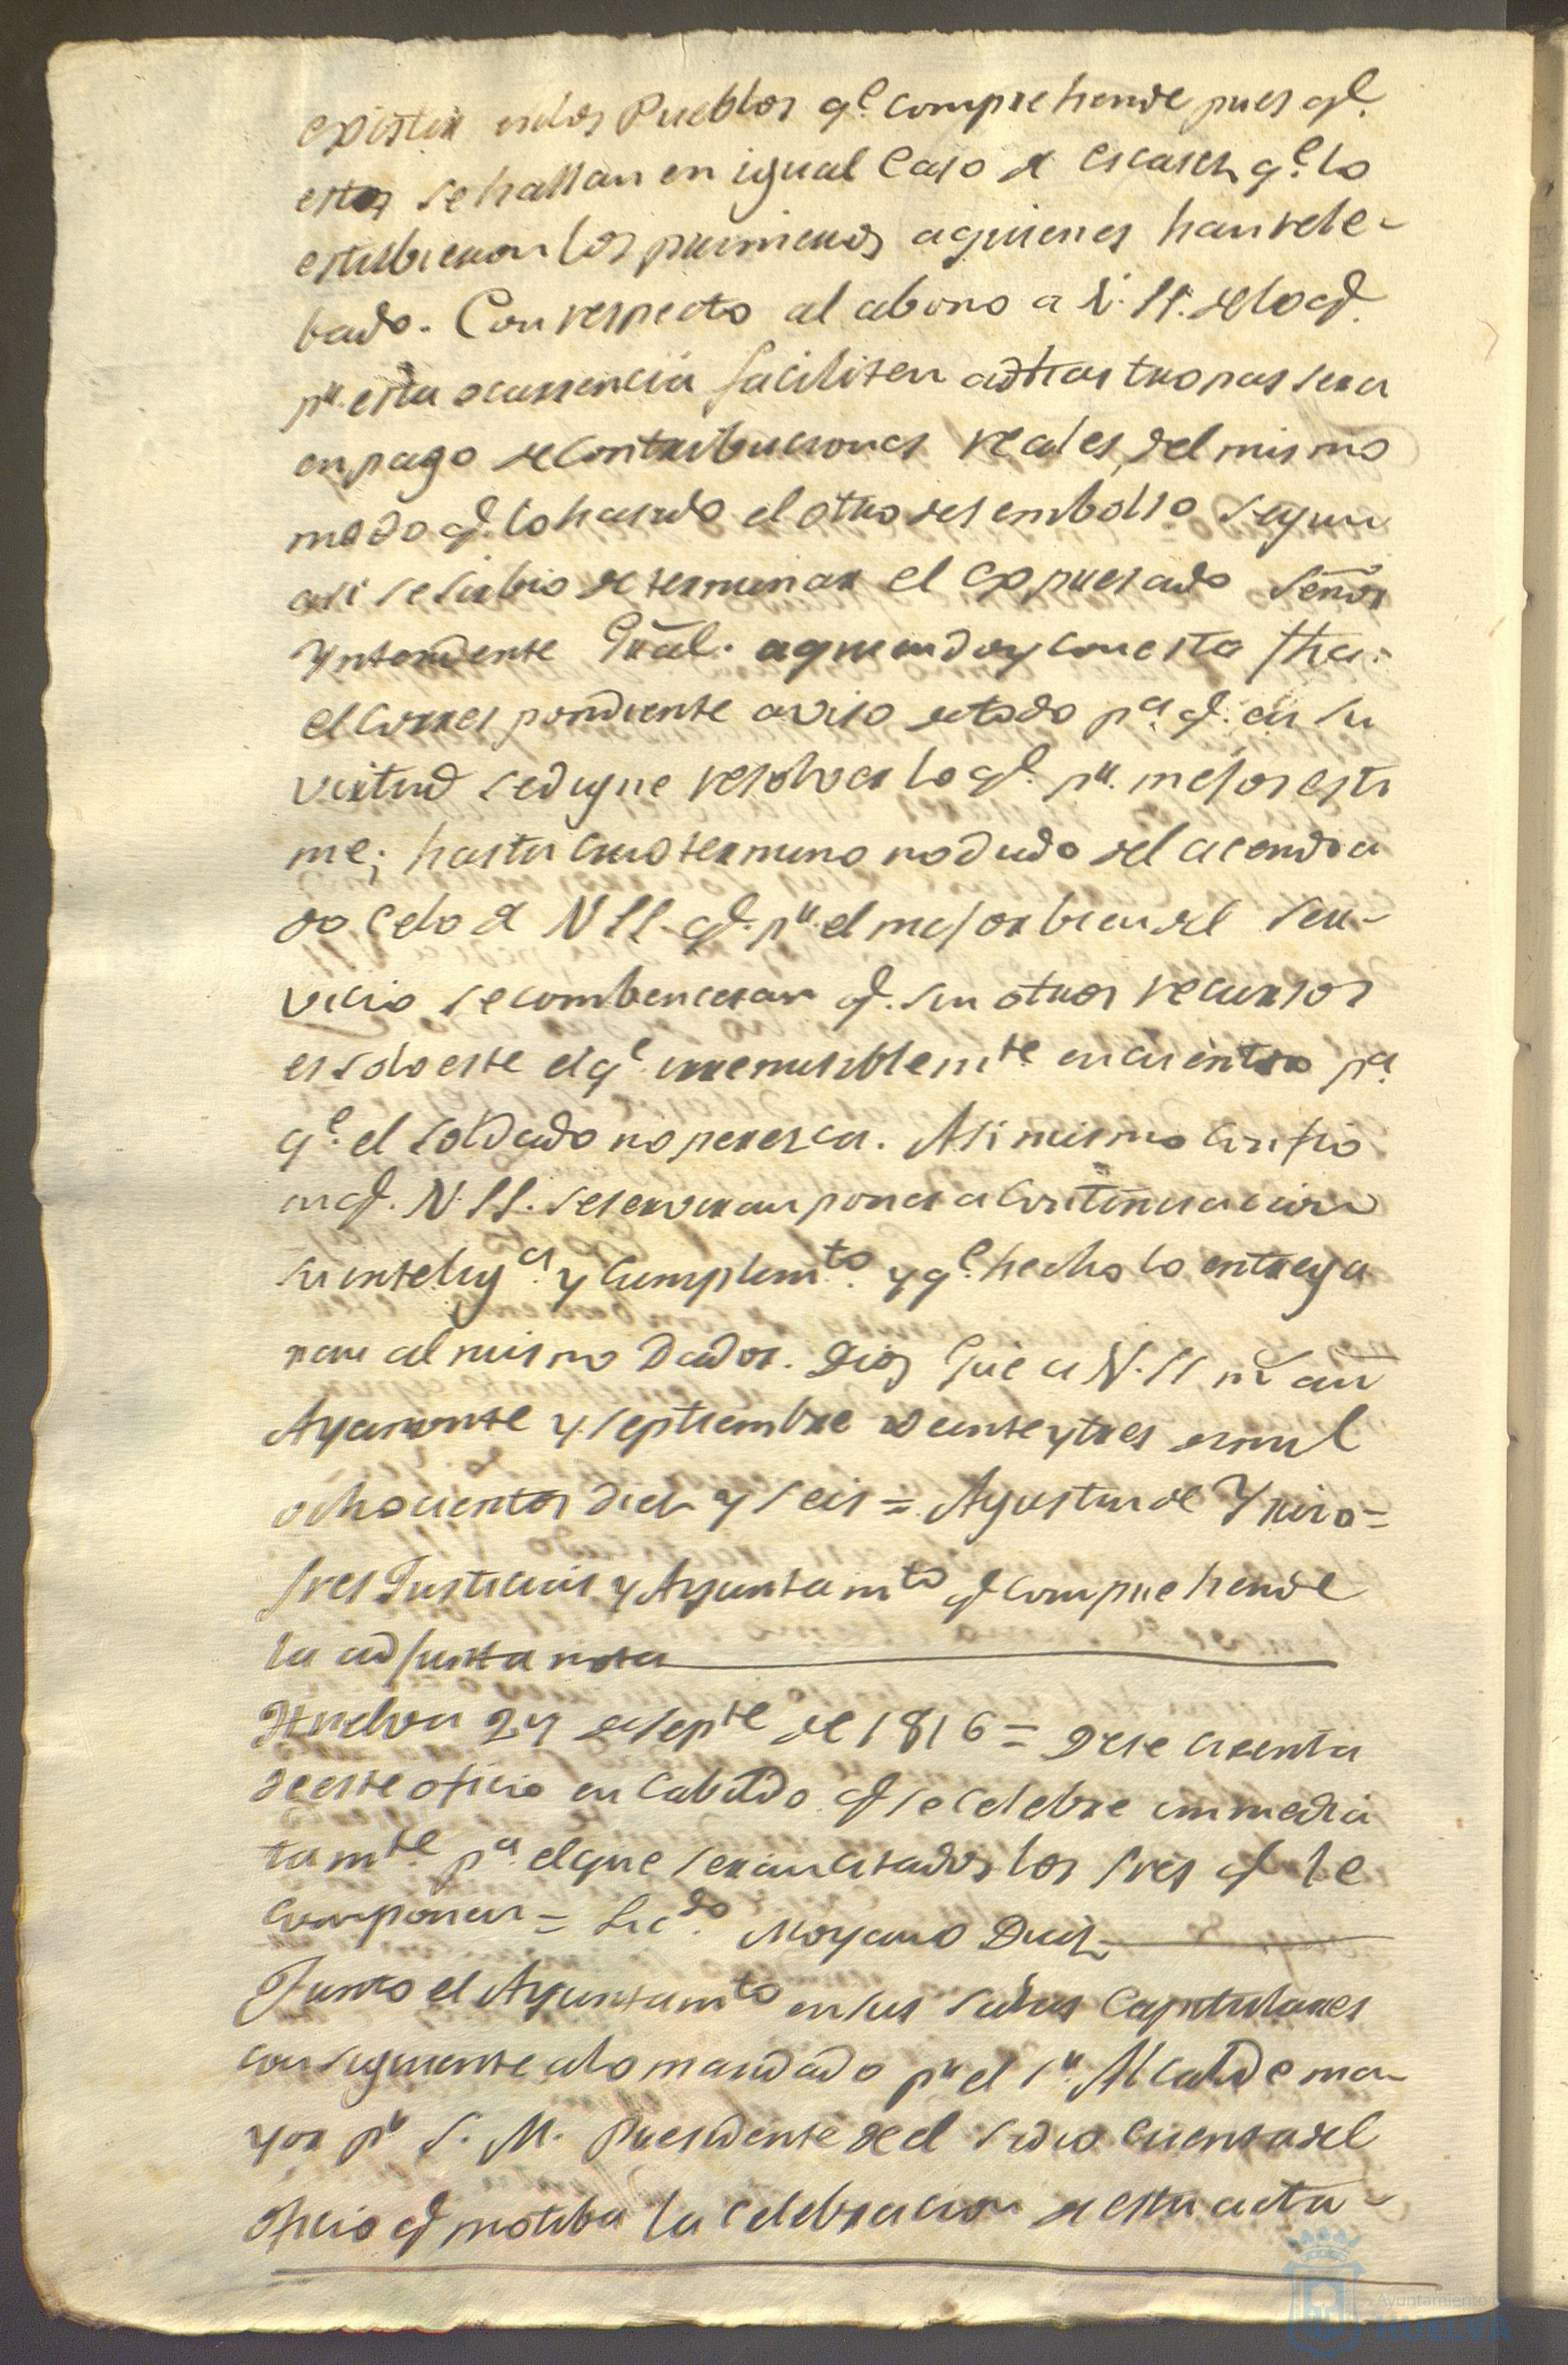 existir en los Pueblos q.e comprehende pues q.e
estos se hallan en igual caso de escases q.e lo
estubieron los primeros a quienes han rele-
bado. Con respecto al abono a V. SS. de lo q.e
p.r esta ocurrencia faciliten a dhas tropas sera
en pago de Contribuciones reales, del mismo
modo q.e lo ha sido el otro desembolso segun
asi se sirbio determinar el expresado Señor
Yntendente Gral. a quien doy con esta fha.
el correspondiente aviso de todo p.a q.e en su
virtud se digne resolver lo q.e p.r mejor esti
me; hasta cuio termino no dudo del acendra
do celo de V SS. q.e p.r el mejor bien del ser-
vicio se combenceran q.e sin otros recursos
es solo este el q.e irremisiblem.te encuentro p.a
q.e el soldado no peresca. Asi mismo confio
en q.e V. SS. se serviran poner a continuacion
su intelig.a y Cumplim.to y q.e hecho lo entrega
ran al mismo Dador. Dios gue a V. SS m. an
Ayamonte y septiembre veinte y tres de mil
ochocientos diez y seis = Agustin de Yniro=
Sres Justicias y Ayuntam.to q.e comprehende
la adjunta nota
Huelva 24 de sep.te de 1816 = Dese cuenta
de este oficio en Cabildo q.e se celebre immedia
tam.te p.a el que seran citados los Sres q.e le
componen = Lic.do Moyano Diez
Junto el Ayuntam.to en sus salas Capitulares
consiguiente a lo mandado p.r el S.r Alcalde ma-
yor p.r S. M. Presidente de el se dio cuenta del
oficio q.e motiba la celebracion de esta acta-
Ayuntamiento
HUELVA